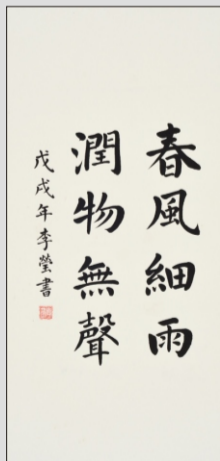 春風細雨
潤物無聲
戊戌年李瑩書